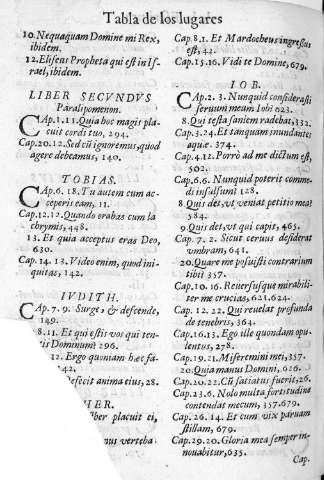 Tabla de los lugares
10. Nequaquam Domine mi Rex,
ibidem.
12. Eliſeus Propheta qui eſt in Iſ-
rael, ibidem.
LIBER SECVNDVS
Paralipomenon.
CAp. 1. 11. Quia hoc magis pla-
cuit cordi tuo, 294.
Cap. 20. 12. Sed cũ ignoremus, quod
agere debeamus, 140.
TOBIAS.
CAp. 6. 18. Tu autem cum ac-
ceperis eam, 11.
Cap. 12. 12. Quando orabas cum la
chrymis, 448.
13. Et quia acceptus eras Deo,
630.
Cap. 14. 13. Video enim, quod ini-
quitas, 142.
IVDITH.
CAp. 7. 9. Surge, & deſcende,
149.
8. 11. Et qui eſtis vos qui ten-
tis Dominum? 296.
12. Ergo quoniam hæc fa
142.
Defecit anima eius, 28.
HER.
liber placuit ei,
nus verteba-
Cap. 8. 1. Et Mardocheus ingreſſus
eſt, 42.
Cap. 15. 16. Vidi te Domine, 679.
IOB.
CAp. 2. 3. Nunquid conſideraſti
ſeruum meum Iob? 623.
8. Qui teſta ſaniem radebat, 332.
Cap. 3. 24. Et tanquam inundantes
aquæ. 374.
Cap. 4. 12. Porrò ad me dictum eſt,
502.
Cap. 6. 6. Nunquid poterit comme
di inſalſum? 128.
8 Quis det, vt veniat petitio mea?
584.
9. Quis det, vt qui cæpit, 465.
Cap. 7. 2. Sicut ceruus deſiderat
vmbram, 641.
20. Quare me poſuiſti contrarium
tibi? 357.
Cap. 10. 16. Reuerſuſque mirabili-
ter me crucias, 621. 624.
Cap. 12. 22. Qui reuelat profunda
de tenebris, 364.
Cap. 16. 13. Ego ille quondam opu-
lentus, 278.
Cap. 19. 21. Miſeremini mei, 357.
20. Quia manus Domini, 626.
Cap. 20. 22. Cũ ſatiatus fuerit, 26.
Cap. 23. 6. Nolo multa fortitudine
contendat mecum, 357. 679.
Cap. 26. 14. Et cum vix paruam
ſtillam, 679.
Cap. 29. 20. Gloria mea ſemper in-
nouabitur, 635.
Cap.